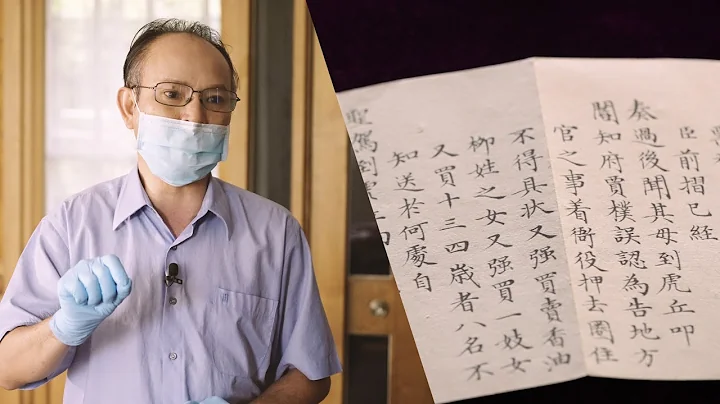 臣前摺已經
奏過後聞其母到虎丘叩
閽知府賈樸誤認為告地方
官之事着衙役押去圈住
不得具状又强買賣香油
柳姓之女又强買一妓女
又買十三四歲者八名不
知送於何處自
駕到